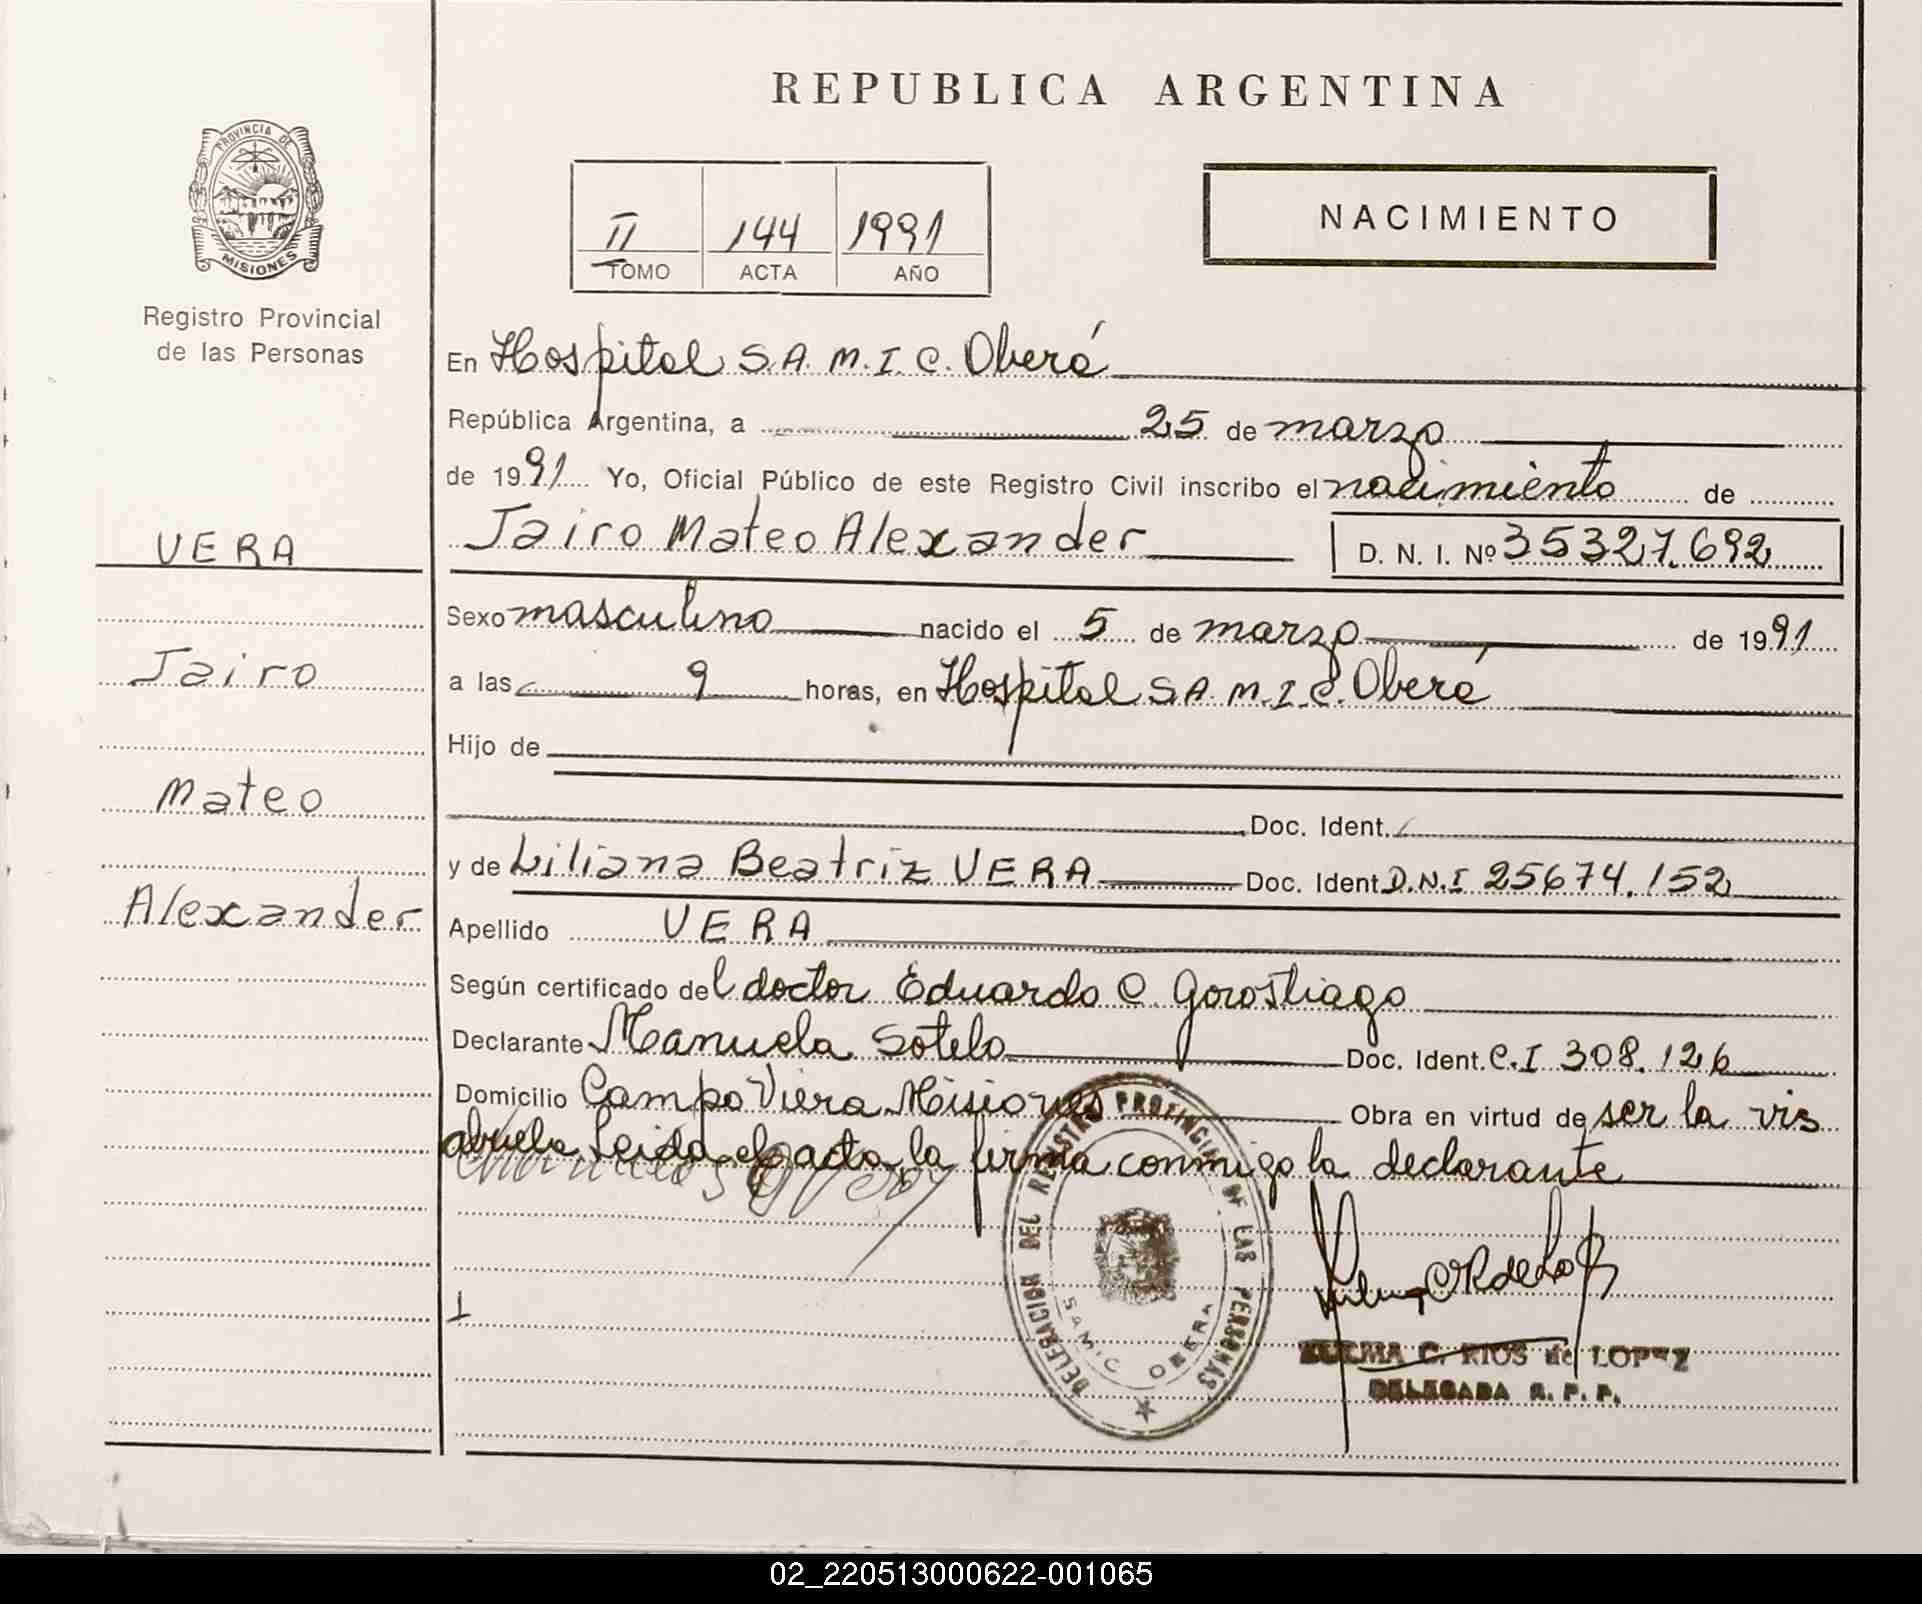 REPUBLICA ARGENTINA
PROVINCIA DE
MISIONES
Registro Provincial
de las Personas
II 144 1991
TOMO ACTA AÑO
NACIMIENTO
En Hospital S.A.M.I.C. Oberá
República Argentina, a 25 de marzo
de 1991 Yo, Oficial Público de este Registro Civil inscribo el nacimiento de
Jairo Mateo Alexander D. N. I. Nº 35327.692
VERA
Sexo masculino nacido el 5 de marzo de 1991
Jairo
a las 9 horas, en Hospital S.A.M.I.C. Oberá
Hijo de
Mateo
Doc. Ident.
y de Liliana Beatriz VERA Doc. Ident D.N.I 25674.152
Alexander
Apellido VERA
Según certificado del doctor Eduardo C. Gorostiago
Declarante Manuela Sotelo Doc. Ident. C.I 308.126
Domicilio Campo Viera Misiones Obra en virtud de ser la vis
abuela Leida el acta, la firma conmigo la declarante
DELEGACION DEL REGISTRO PROVINCIAL DE LAS PERSONAS
SAMIC OBERA
ZULMA C. RIOS de LOPEZ
DELEGADA R. P. P.
02_220513000622-001065